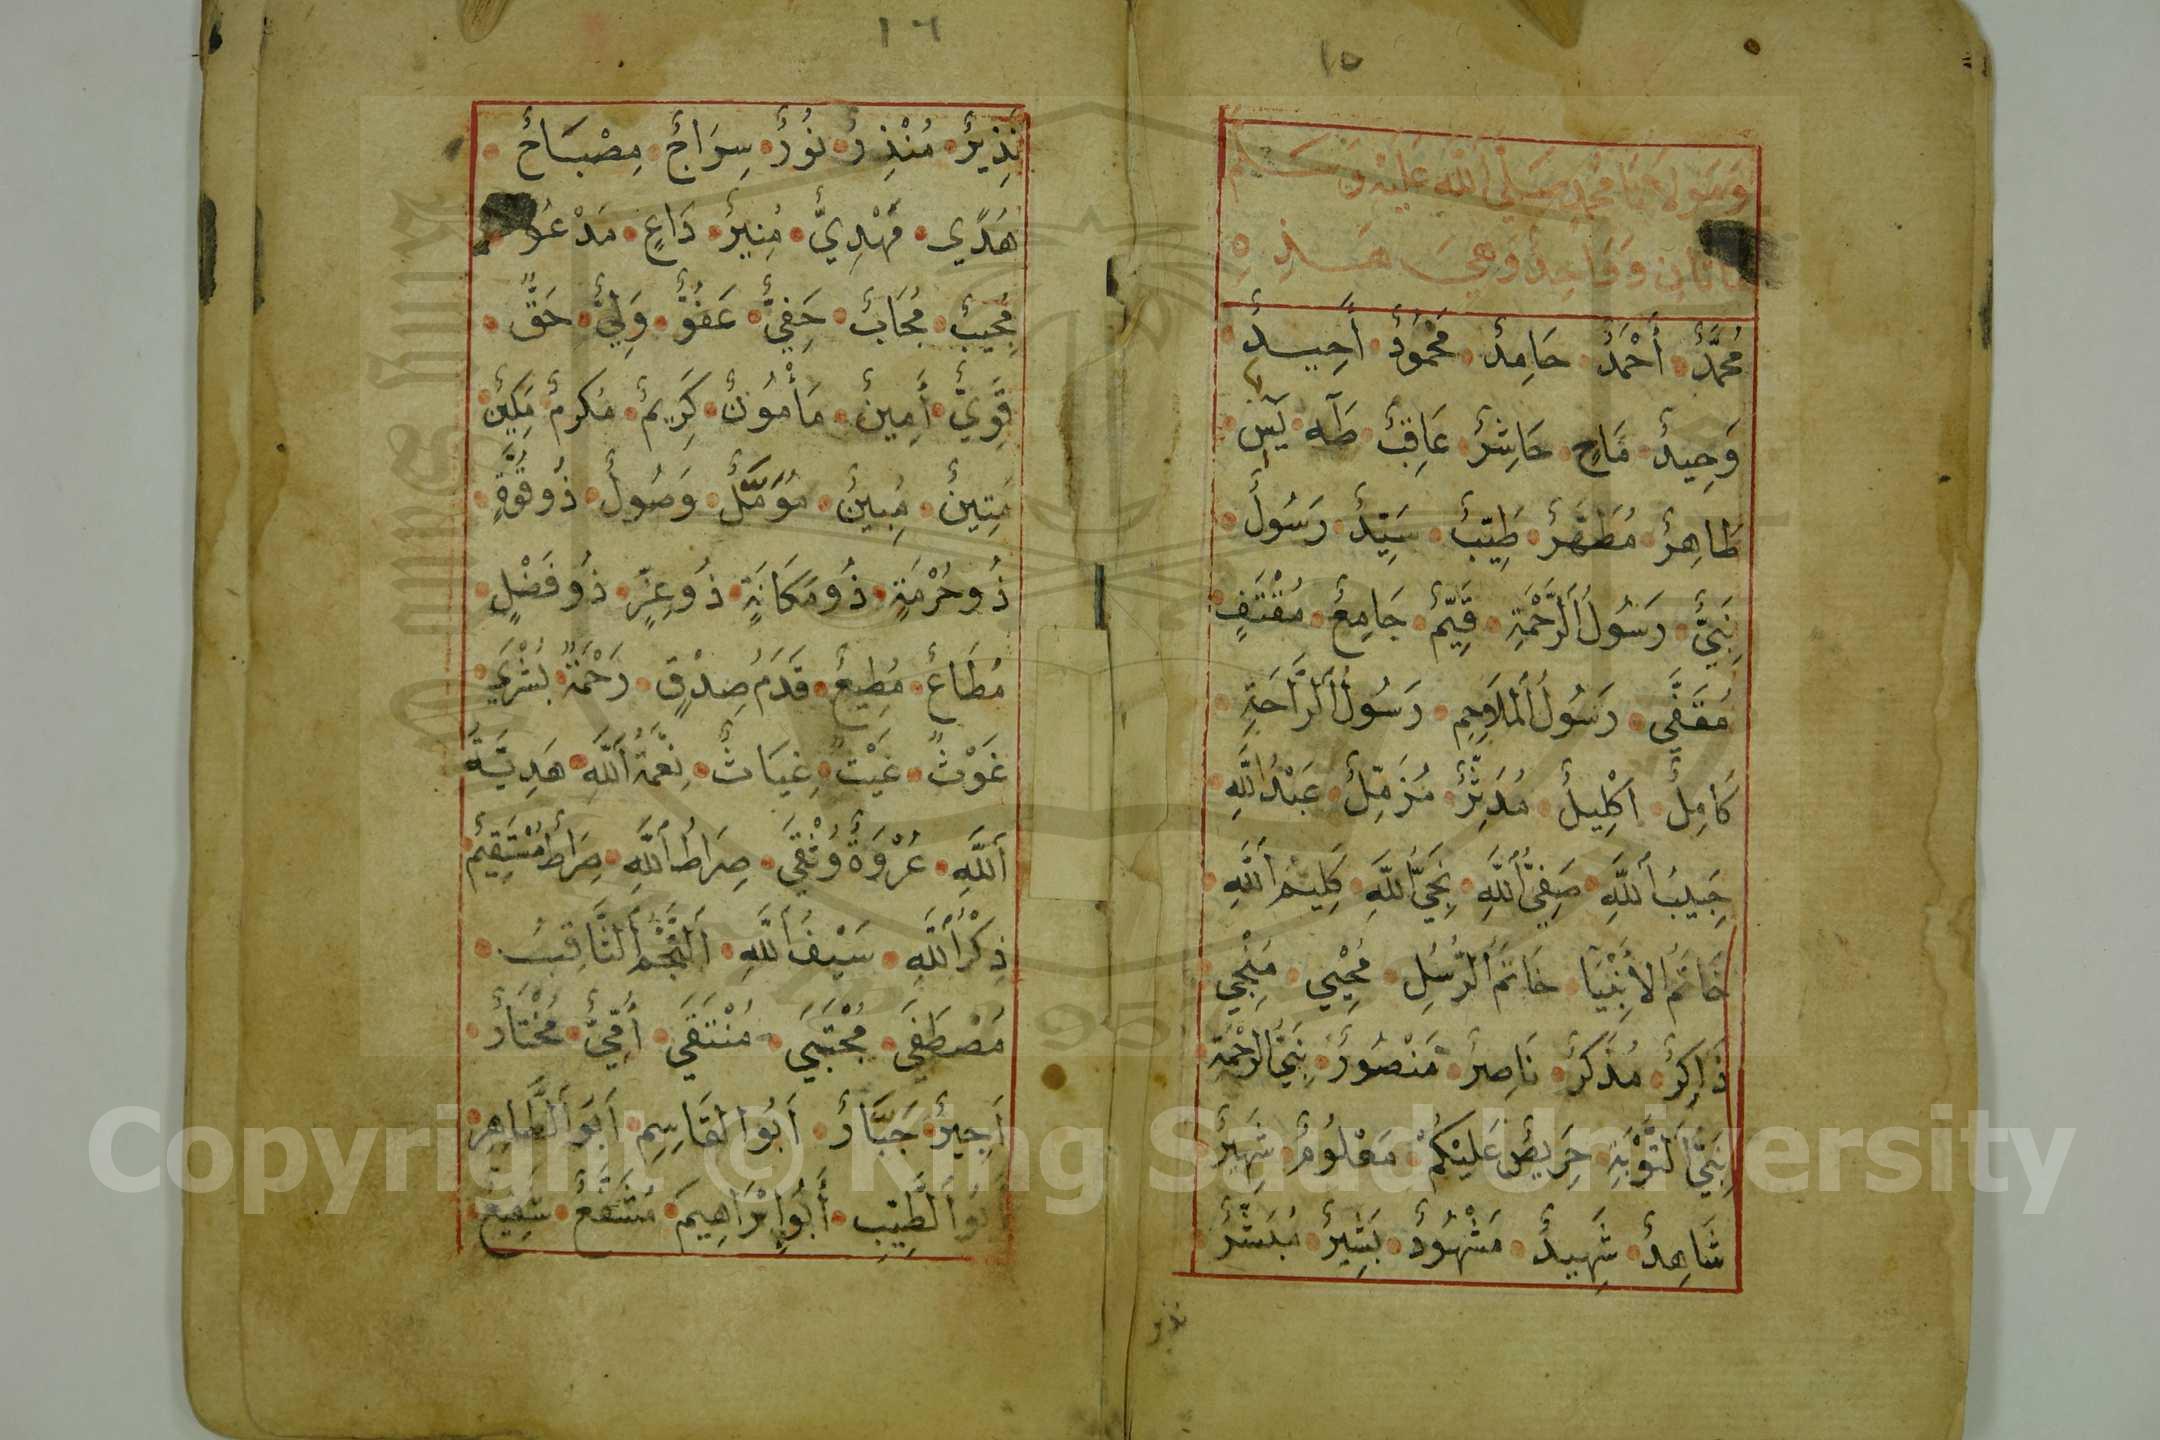 ١٥
وَمَولَانَا مُحَمَّدٍ صَلَّي اللّٰه عَلَيْهِ وَسَلَّمَ
مِائَتَانِ وَوَاحِدٌ وَهِيَ هَذِهِ
مُحَمَّدٌ أَحْمَدٌ حَامِدٌ مَحْمُودٌ أَحِيدٌ
وَحِيدٌ مَاحٍ حَاشِرٌ عَاقِبٌ طَه يَس
طَاهِرٌ مُطَهَّرٌ طَيِّبٌ سَيِّدٌ رَسُولٌ
نَبِيٌّ رَسُولُ اَلرَّحْمَةِ قَيِّمٌ جَامِعٌ مُقْتَفٍ
مُقَفَّي رَسُولُ اَلْمَلَاحِمِ رَسُولُ اَلرَّاحَةِ
كَامِلٌ اَكْلِيلٌ مُدَثِّرٌ مُزَمِّلٌ عَبْدُ اللَّهِ
حَبِيبُ اَللَّهِ صَفِيُّ اَللَّهِ نَجِيُّ اَللَّهِ كَلِيمُ اَللَّهِ
خَاتَمُ الأَنْبِيَا خَاتَمُ اَلرُّسُلِ مُحْيِي مُنْجِي
ذَاكِرٌ مُذَكِّرٌ نَاصِرٌ مَنْصُورٌ نَبِيُّ الرَّحْمَةِ
نَبِيُّ اَلتَّوْبَةِ حَرِيصٌ عَلَيْكُمْ مَعْلُومٌ شَهِيرٌ
شَاهِدٌ شَهِيدٌ مَشْهُودٌ بَشِيرٌ مُبَشِّرٌ
نذير
١٦
نَذِيرٌ مُنْذِرٌ نُورٌ سِرَاجٌ مِصْبَاحٌ
هُدًي مَهْدِيٌّ مُنِيرٌ دَاعٍ مَدْعُوٌّ
مُجِيبٌ مُجَابٌ حَفِيٌّ عَفُوٌّ وَلِيٌّ حَقٌّ
قَوِيٌّ أَمِينٌ مَأْمُونٌ كَرِيمٌ مُكَرَّمٌ مَكِينٌ
مَتِينٌ مُبِينٌ مُؤَمَّلٌ وَصُولٌ ذُو قُوَّةٍ
ذُو حُرْمَةٍ ذُو مَكَانَةٍ ذُو عِزٍّ ذُو فَضْلٍ
مُطَاعٌ مُطِيعٌ قَدَمُ صِدْقٍ رَحْمَةٌ بُشْرَي
غَوْثٌ غَيْثٌ غِيَاثٌ نِعْمَةُ اَللَّهِ هَدِيَّةُ
اَللَّهِ عُرْوَةٌ وُثْقَي صِرَاطُ اَللَّهِ صِرَاطٌ مُسْتَقِيمٌ
ذِكْرُ اَللَّهِ سَيْفُ اَللَّهِ اَلنَّجْمُ اَلثَّاقِبُ
مُصْطَفَي مُجْتَبَي مُنْتَقَي أُمِّيٌّ مُخْتَارٌ
اَجِيرٌ جَبَّارٌ اَبُو القَاسِمِ اَبُو اَلطَّاهِرِ
اَبُو اَلطَّيِّبِ أَبُو إِبْرَاهِيمَ مُشَفَّعٌ شَفِيعٌ
Copyright © King Saud University